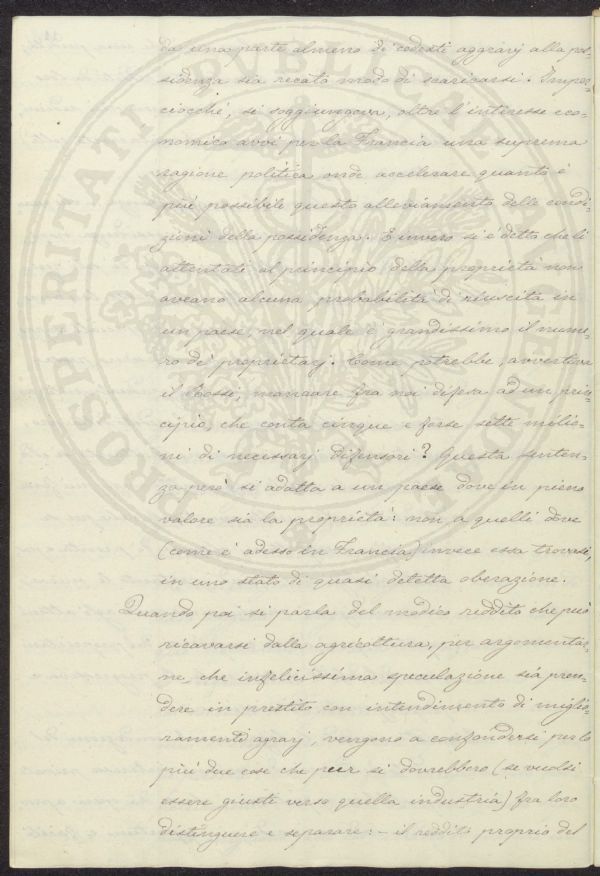 da una parte almeno di codesti aggravj alla pos-
sidenza sia recato modo di scaricarsi. Imper-
ciocché, si soggiungeva, oltre l'interesse eco-
nomico avvi per la Francia una suprema
ragione politica onde accelerare quanto è
più possibile questo alleviamento delle condi-
zioni della possidenza. E invero si è detto che li
attentati al principio della proprietà non
aveano alcuna probabilità di riuscita in
un paese, nel quale è grandissimo il nume-
ro de' proprietarj. Come potrebbe, avvertiva
il Rossi, mancare fra noi difesa ad un prin-
cipio, che conta cinque e forse sette milio-
ni di necessarj difensori? Questa senten-
za però si adatta a un paese dove in pieno
valore sia la proprietà: non a quelli dove
(come è adesso in Francia) invece essa trovasi,
in uno stato di quasi oberazione.
Quando poi si parla del modico reddito che può
ricavarsi dalla agricoltura, per argomentar-
ne, che infelicissima speculazione sia pren-
dere in prestito con intendimento di miglio-
ramenti agrarj, vengono a confondersi per lo
più due cose che pur si dovrebbero (se vuolsi
essere giusti verso quella industria) fra loro
distinguere e separare: - il reddito proprio del
PROSPERITATI PVBLICAE AVGENDAE